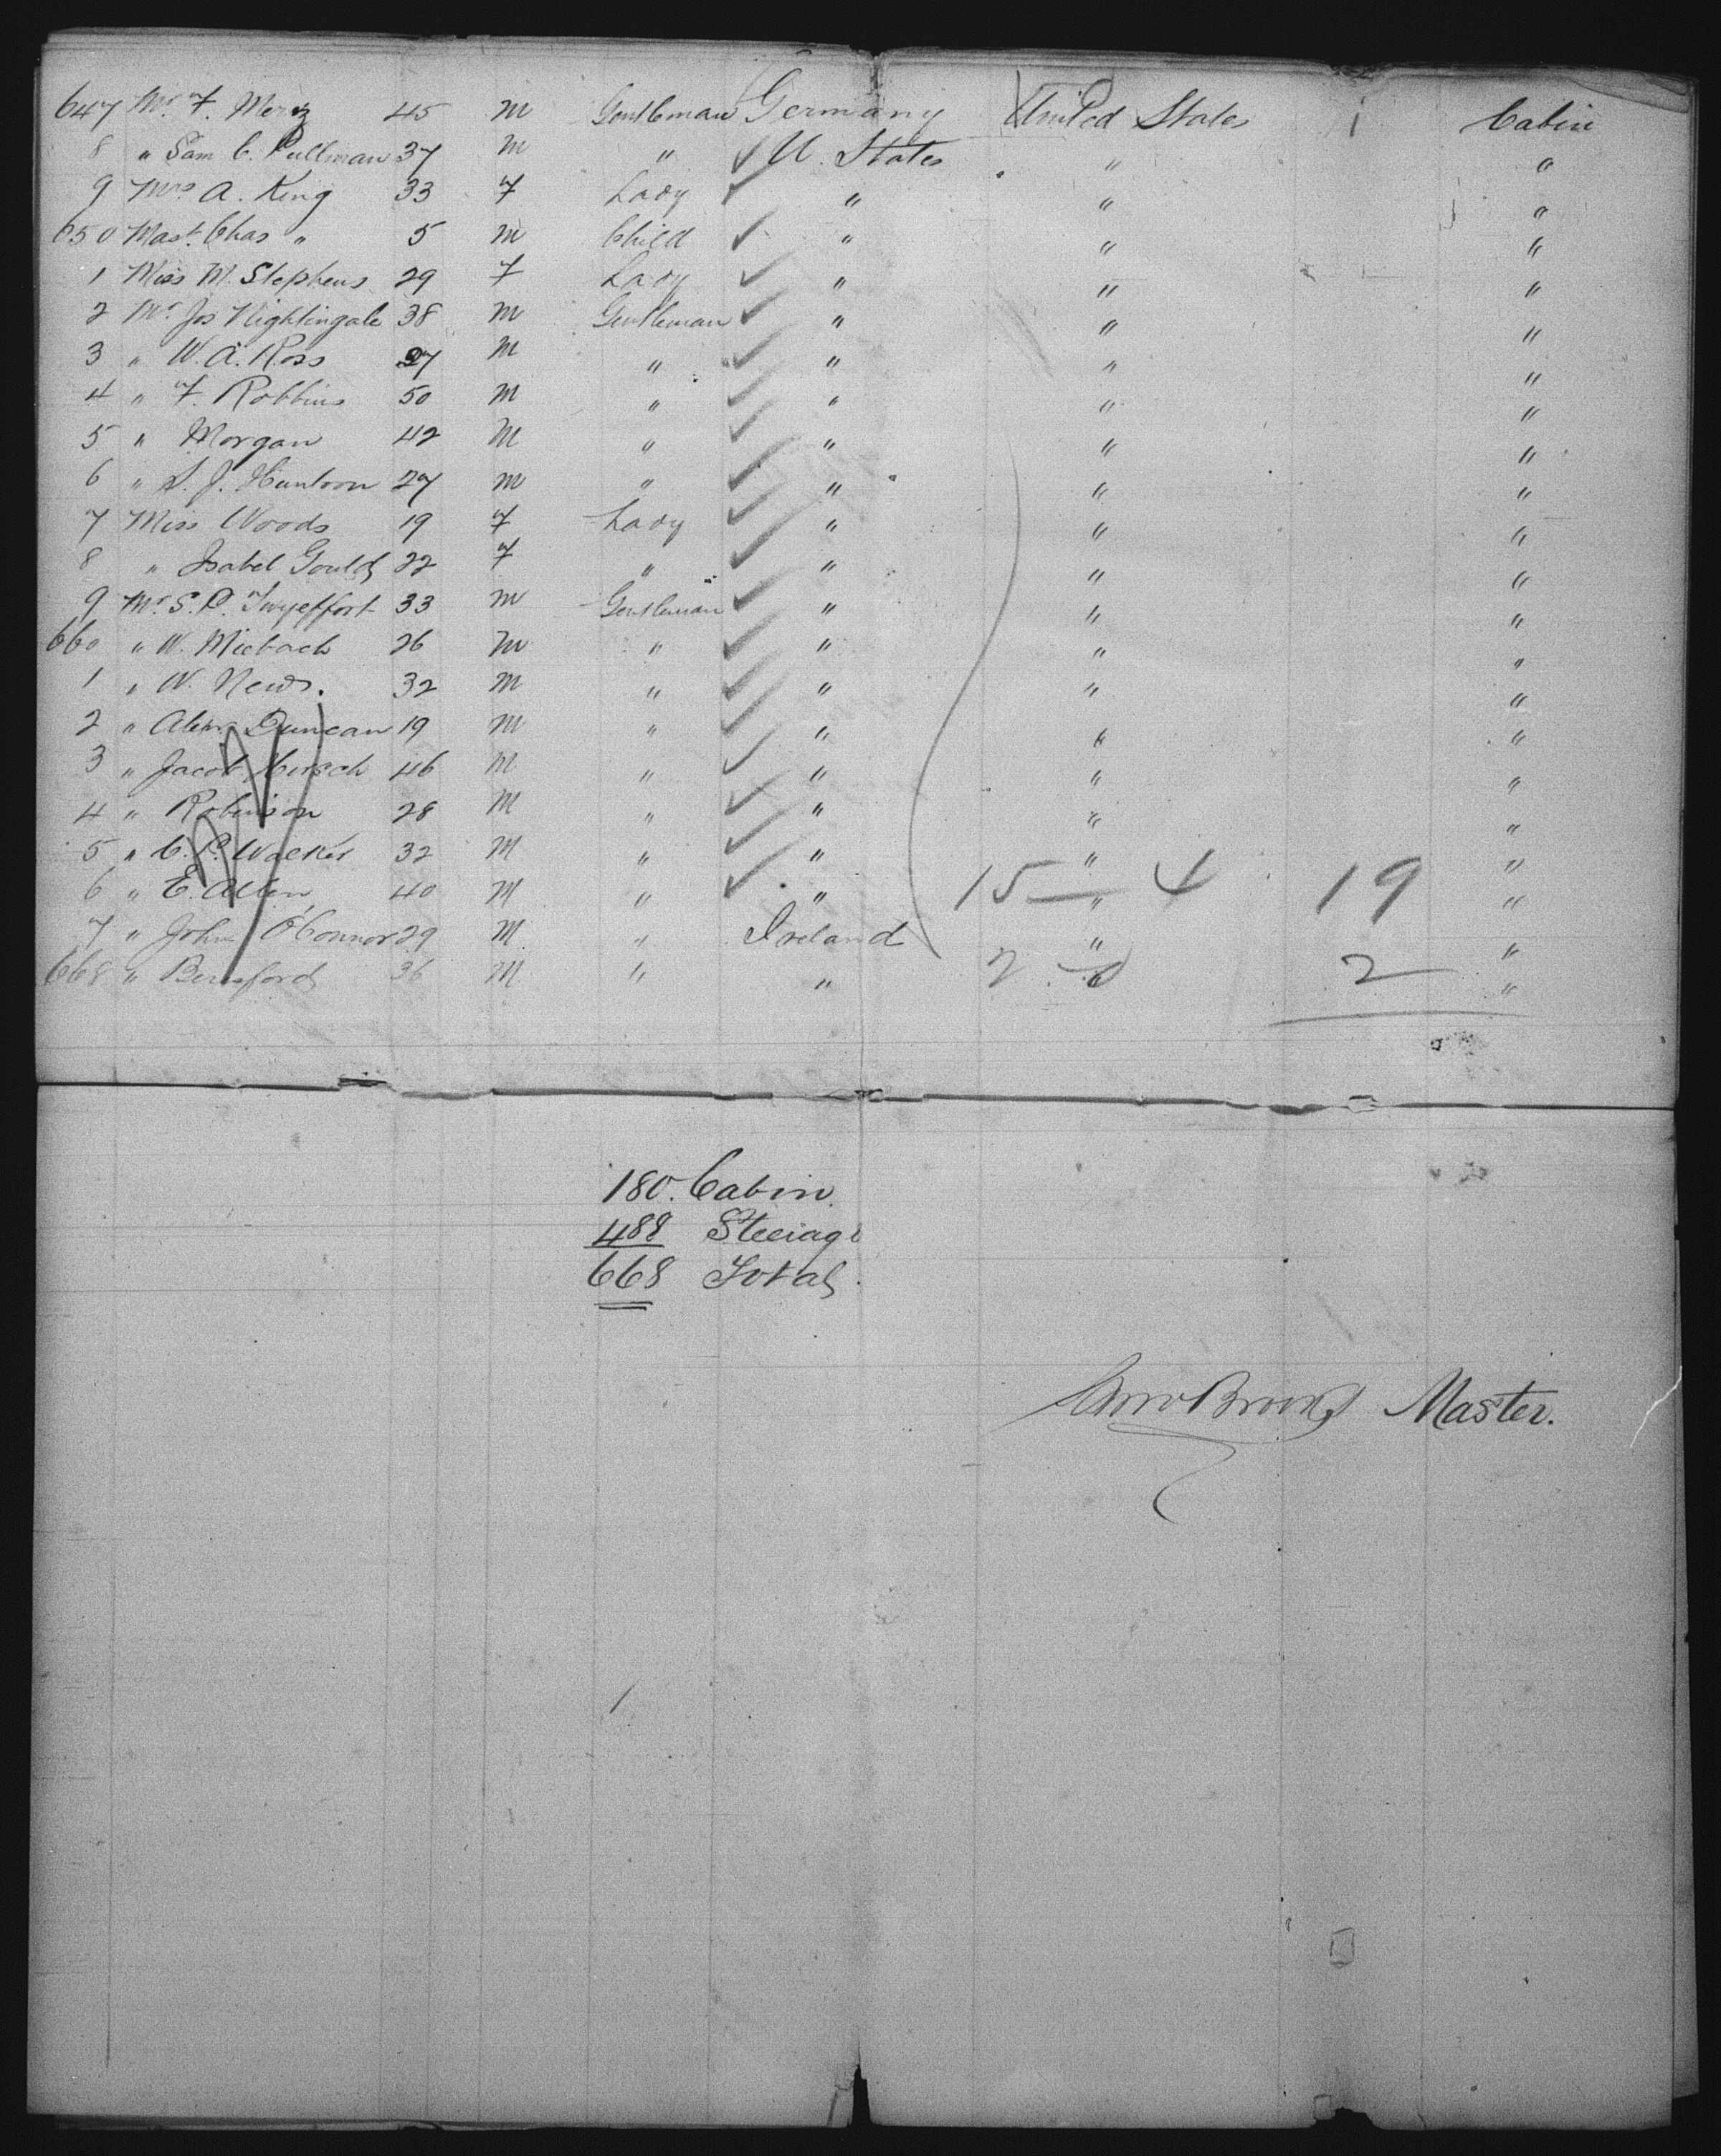 647 Mr. F. Merz 45 m Gentleman Germany United States 1 Cabin
8 " Sam C. Pullman 37 m " ✓ U. States " "
9 Mrs A. King 33 F Lady ✓ " " "
650 Mast. Chas " 5 m Child ✓ " " "
1 Miss M. Stephens 29 F Lady ✓ " " "
2 Mr Jos Nightingale 38 m Gentleman ✓ " " "
3 " W. A. Ross 27 m " ✓ " " "
4 " F. Robbins 50 m " ✓ " " "
5 " Morgan 42 m " ✓ " " "
6 " S. J. Huntoon 27 m " ✓ " " "
7 Miss Woods 19 F Lady ✓ " " "
8 " Isabel Gould 22 F " ✓ " " "
9 Mr. S. P. Twyeffort 33 m Gentleman ✓ " " "
660 " W. Miebach 26 m " ✓ " " "
1 " W. News. 32 m " ✓ " " "
2 " Alexr. Duncan 19 m " ✓ " " "
3 " Jacob Hirsch 46 m " ✓ " " "
4 " Robinson 28 m " ✓ " " "
5 " C. P. Walker 32 m " ✓ " " "
6 " E. Allen 40 m " ✓ " 15 " 4 19 "
7 " John O'Connor 29 m " Ireland " "
668 " Beresford 36 m " " 2 " 0 2 "
180. Cabin.
488 Steerage
668 Total.
Brooks Master.